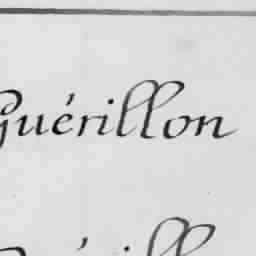 Guérillon